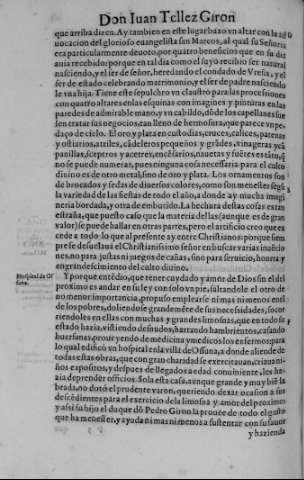 Don Iuan Tellez Giron
que arriba dixe. Ay tambien en este lugar baxo vn altar con la ad
uocacion del glorioso euangelista san Marcos, al qual su Señoria
era particularmente deuoto, por quatro beneficios que en su dia
auia recebido: porque en tal dia como el suyo recibio ser natural
nasciendo, y el ser de señor, heredando el condado de Vreña, y el
ser de estado celebrando matrimonio, y el ser de padre nasciendo
le vna hija. Tiene este sepulchro vn claustro para las processiones
con quatro altares en las esquinas con imagines y pinturas en las
paredes de admirable mano, y vn cabildo, dõde los capellanes sue
len tratar sus negocios, tan lleno de hermosura, que parece vn pe-
daço de cielo. El oro y plata en custodias, cruces, calices, patenas
y ostiarios, atriles, cãdeleros pequeños y grãdes, vinageras y cã
panillas, sceptros y aceteres, encẽsarios, nauetas y fuẽtes es tãto, q̃
no se puede numerar, pues ninguna cosa necessaria para el culto
diuino es de otro metal, sino de oro y plata. Los ornamentos son
de brocados y sedas de diuersos colores, como son menester segũ
la variedad de las fiestas de todo el año, donde ay mucha imagi
neria bordada, y otra de embutido. La hechura destas cosas es tan
estraña, que puesto caso que la materia dellas (aunque es de gran
valor) se puede hallar en otras partes, pero el artificio creo que ex
cede a todo lo que al presente ay entre Christianos: porque siem
pre se desuelaua el Christianissimo señor en buscar varias inuẽcio
nes, no para justas ni juegos de cañas, sino para seruicio, honrra y
engrandescimiento del culto diuino.
Hospital de Os
suna.
Y porque entẽdio, que tener cuydado y amor de Dios sin el del
proximo es andar en su ley con solo vn pie, faltandole el otro de
no menor importancia, propuso emplearse ni mas ni menos en el
de los pobres, doliendose grandemẽte de sus necessidades, socor
riendoles en ellas con muchas y grandes limosnas, que en todo su
estado hazia, vistiendo desnudos, hartando hambrientos, casando
huerfanas, proueyendo de medicina y medicos los enfermos: para
lo qual edificò vn hospital en la villa de Osuna, a donde allende de
todas estas obras, que con gran charidad se exercitauan, criaua ni-
ños expositos, y despues de llegados a edad conuiniente, les ha-
zia deprender officios. Sola esta casa, aunque grande y muy biẽ la
brada, no dotò el prudente varon, queriendo dexar ocasion a sus
descẽdientes para el exercicio de la limosna y amor del proximo
y assi su hijo el duque dõ Pedro Giron la prouee de todo el gasto
que ha menester, y ayuda ni mas ni menos a sustentar con su fauor
y hazienda